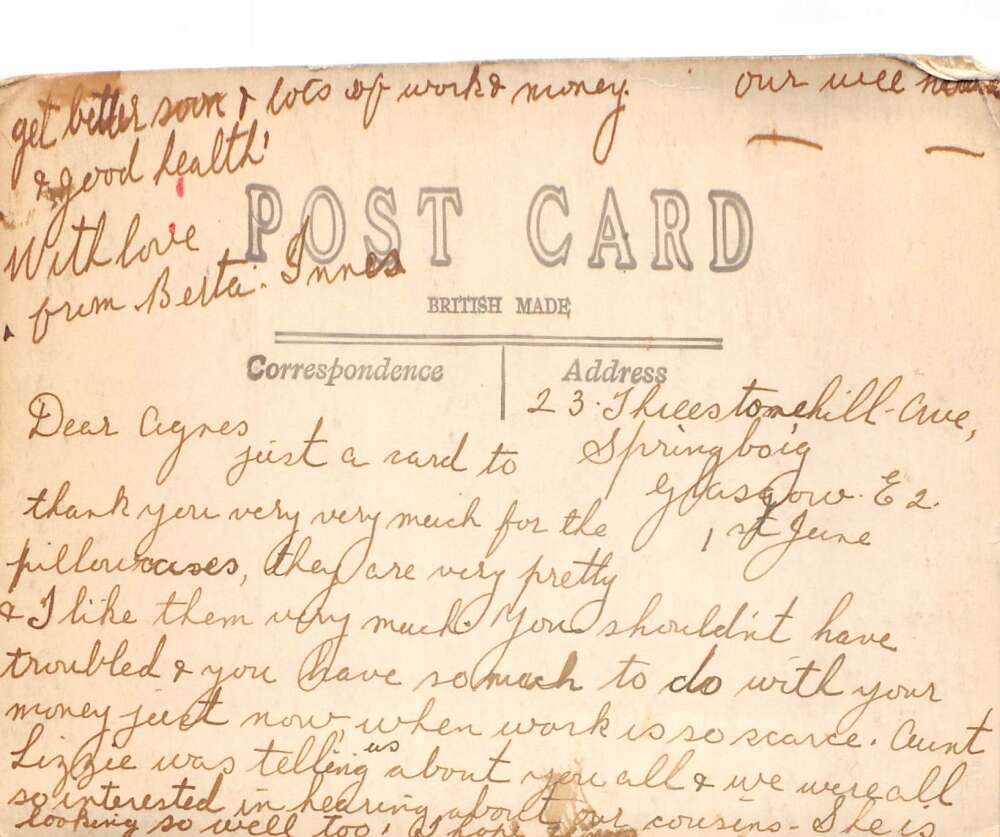 get better soon & lots of work & money. our wee
& good health!
With love
from Berta. Innes
POST CARD
BRITISH MADE
Correspondence Address
23. Threestonehill-Ave,
Springboig
Glasgow. E2.
1st June
Dear Agnes
just a card to
thank you very very much for the
pillowcases, they are very pretty
& I like them very much. You shouldn't have
troubled & you have so much to do with your
money just now, when work is so scarce. Aunt
Lizzie was telling us about you all & we were all
so interested in hearing about our cousins. She is
looking so well too! I hope